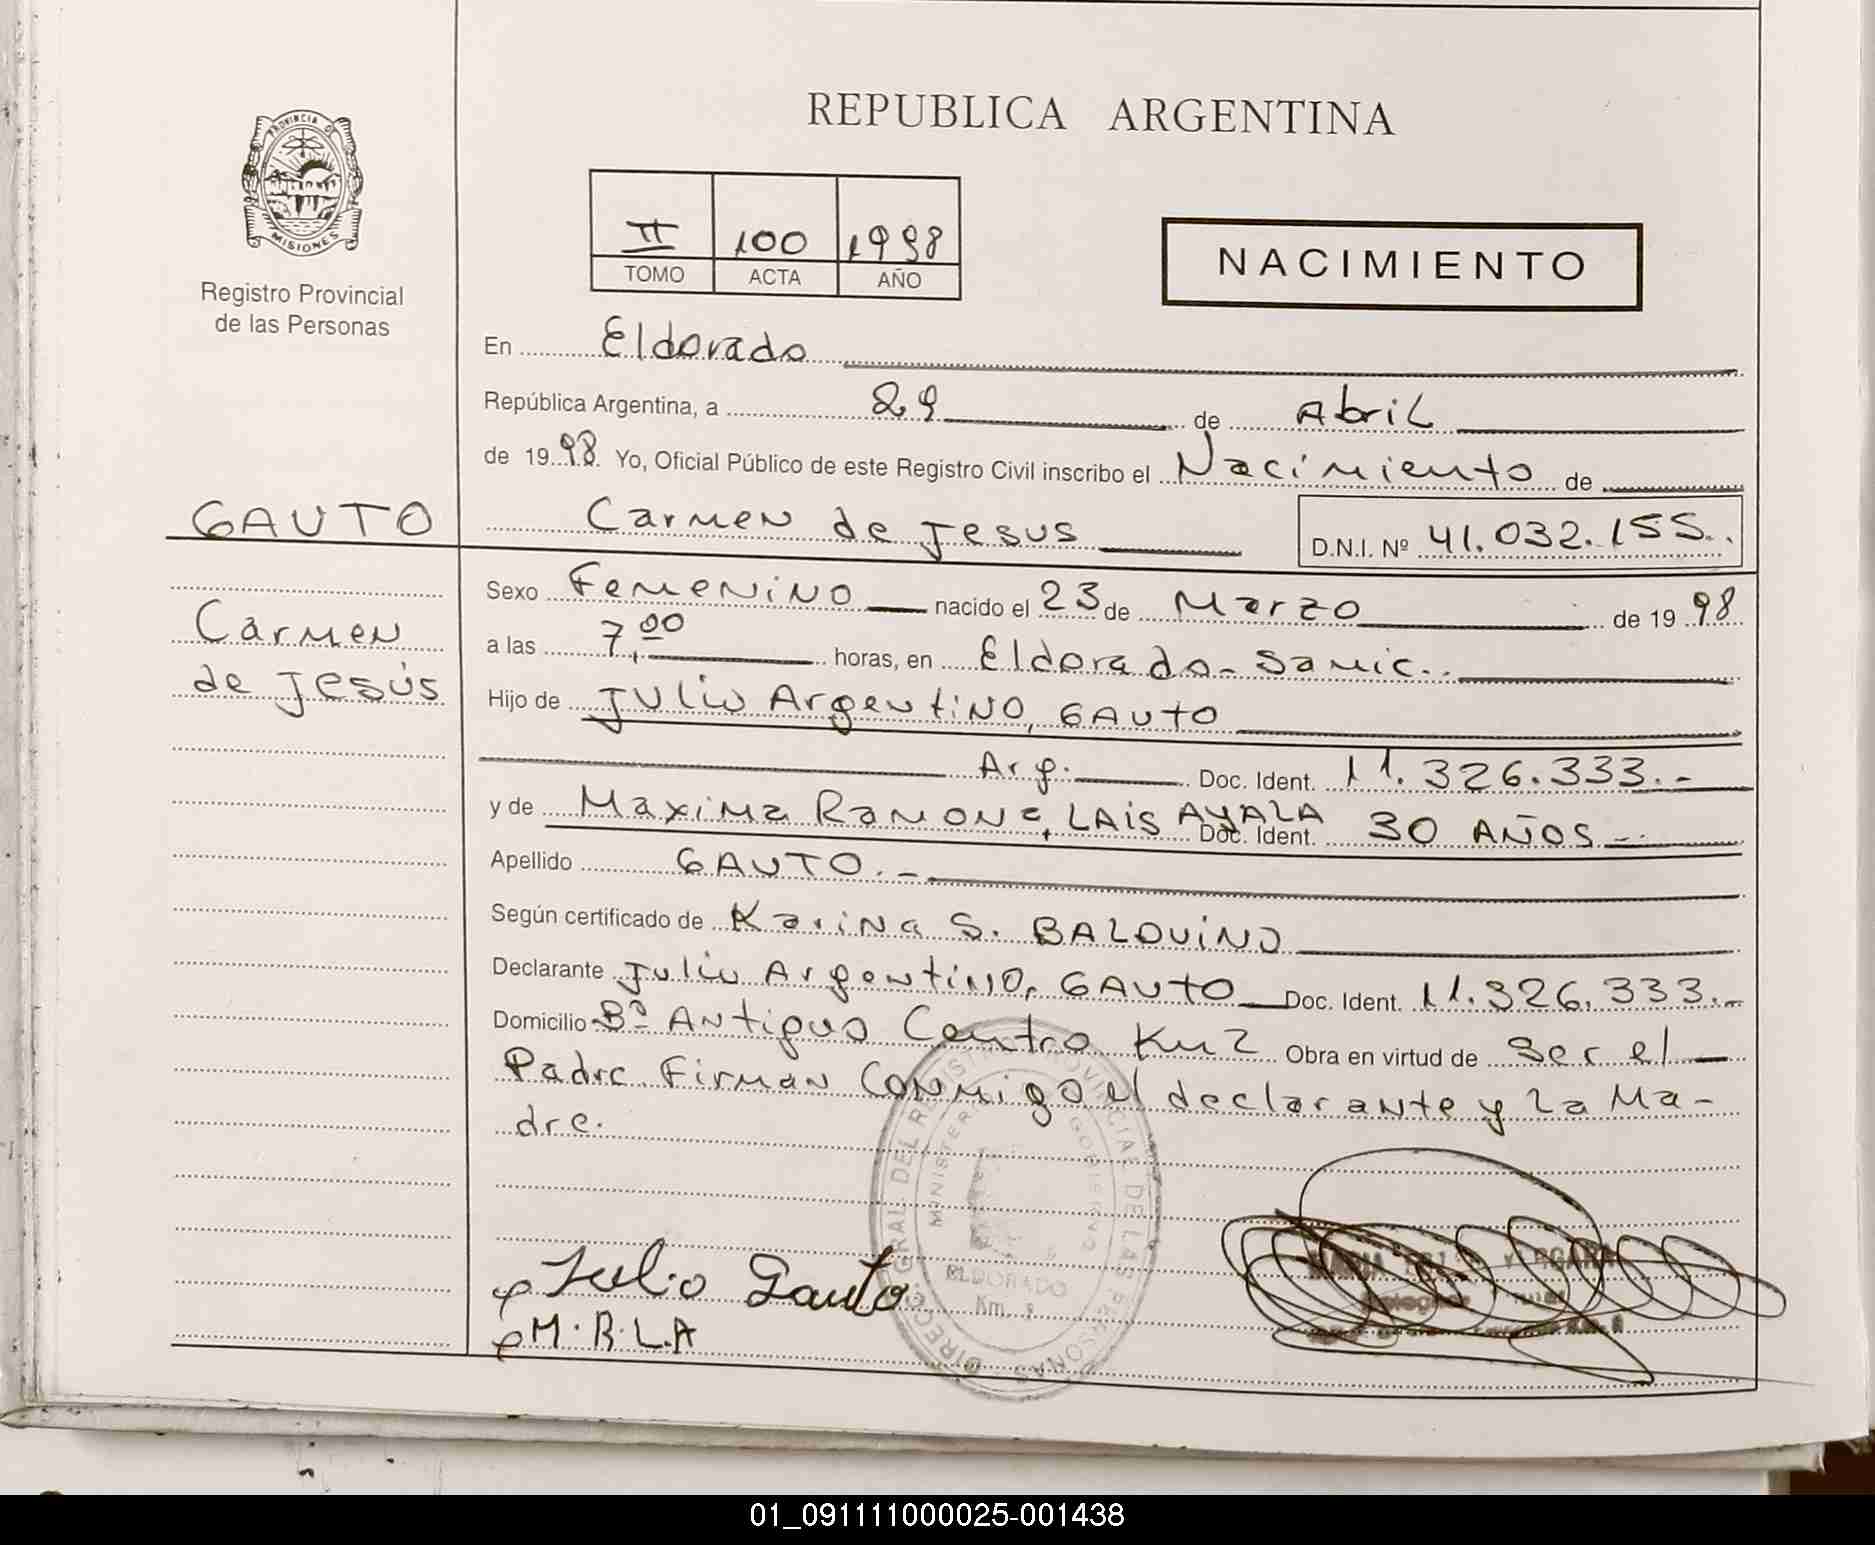 REPUBLICA ARGENTINA
PROVINCIA D
MISIONES
Registro Provincial
de las Personas
II 100 1998
TOMO ACTA AÑO
NACIMIENTO
En Eldorado
República Argentina, a 29 de Abril
de 1998 Yo, Oficial Público de este Registro Civil inscribo el Nacimiento de
GAUTO
Carmen de Jesus
D.N.I. Nº 41.032.155..
Carmen
de Jesús
Sexo Femenino nacido el 23 de Marzo de 1998
a las 7,00 horas, en Eldorado- Samic..
Hijo de Julio Argentino, GAUTO
Arg. Doc. Ident. 11.326.333.-
y de Maxima Ramona, LAIS AYALA Doc. Ident. 30 AÑOS-.
Apellido GAUTO.-
Según certificado de Karina S. BALDUINO
Declarante Julio Argentino, GAUTO Doc. Ident. 11.326.333.-
Domicilio Bº Antiguo Centro Km 2 Obra en virtud de Ser el
Padre Firman Conmigo el declarante y La Ma-
dre.
DIREC. GRAL DEL REGIST PROVINCIAL DE LAS PERSONAS
MINISTER GOBIERNO
ELDORADO
Km. 9
Julio Gauto
M.R.L.A
01_091111000025-001438